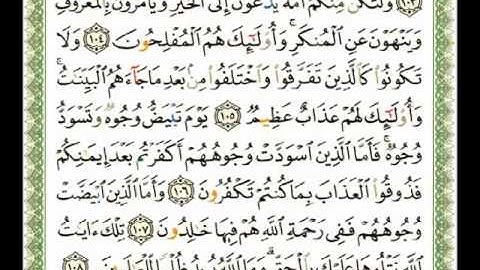 ﴿١٠٣﴾ وَلْتَكُن مِّنكُمْ أُمَّةٌ يَدْعُونَ إِلَى ٱلْخَيْرِ وَيَأْمُرُونَ بِٱلْمَعْرُوفِ
وَيَنْهَوْنَ عَنِ ٱلْمُنكَرِ ۚ وَأُو۟لَـٰٓئِكَ هُمُ ٱلْمُفْلِحُونَ ﴿١٠٤﴾ وَلَا
تَكُونُوا۟ كَٱلَّذِينَ تَفَرَّقُوا۟ وَٱخْتَلَفُوا۟ مِنۢ بَعْدِ مَا جَآءَهُمُ ٱلْبَيِّنَـٰتُ ۚ
وَأُو۟لَـٰٓئِكَ لَهُمْ عَذَابٌ عَظِيمٌ ﴿١٠٥﴾ يَوْمَ تَبْيَضُّ وُجُوهٌ وَتَسْوَدُّ
وُجُوهٌ ۚ فَأَمَّا ٱلَّذِينَ ٱسْوَدَّتْ وُجُوهُهُمْ أَكَفَرْتُم بَعْدَ إِيمَـٰنِكُمْ
فَذُوقُوا۟ ٱلْعَذَابَ بِمَا كُنتُمْ تَكْفُرُونَ ﴿١٠٦﴾ وَأَمَّا ٱلَّذِينَ ٱبْيَضَّتْ
وُجُوهُهُمْ فَفِى رَحْمَةِ ٱللَّهِ هُمْ فِيهَا خَـٰلِدُونَ ﴿١٠٧﴾ تِلْكَ ءَايَـٰتُ
ٱللَّهِ نَتْلُوهَا عَلَيْكَ بِٱلْحَقِّ ۗ وَمَا ٱللَّهُ يُرِيدُ ظُلْمًا لِّلْعَـٰلَمِينَ ﴿١٠٨﴾